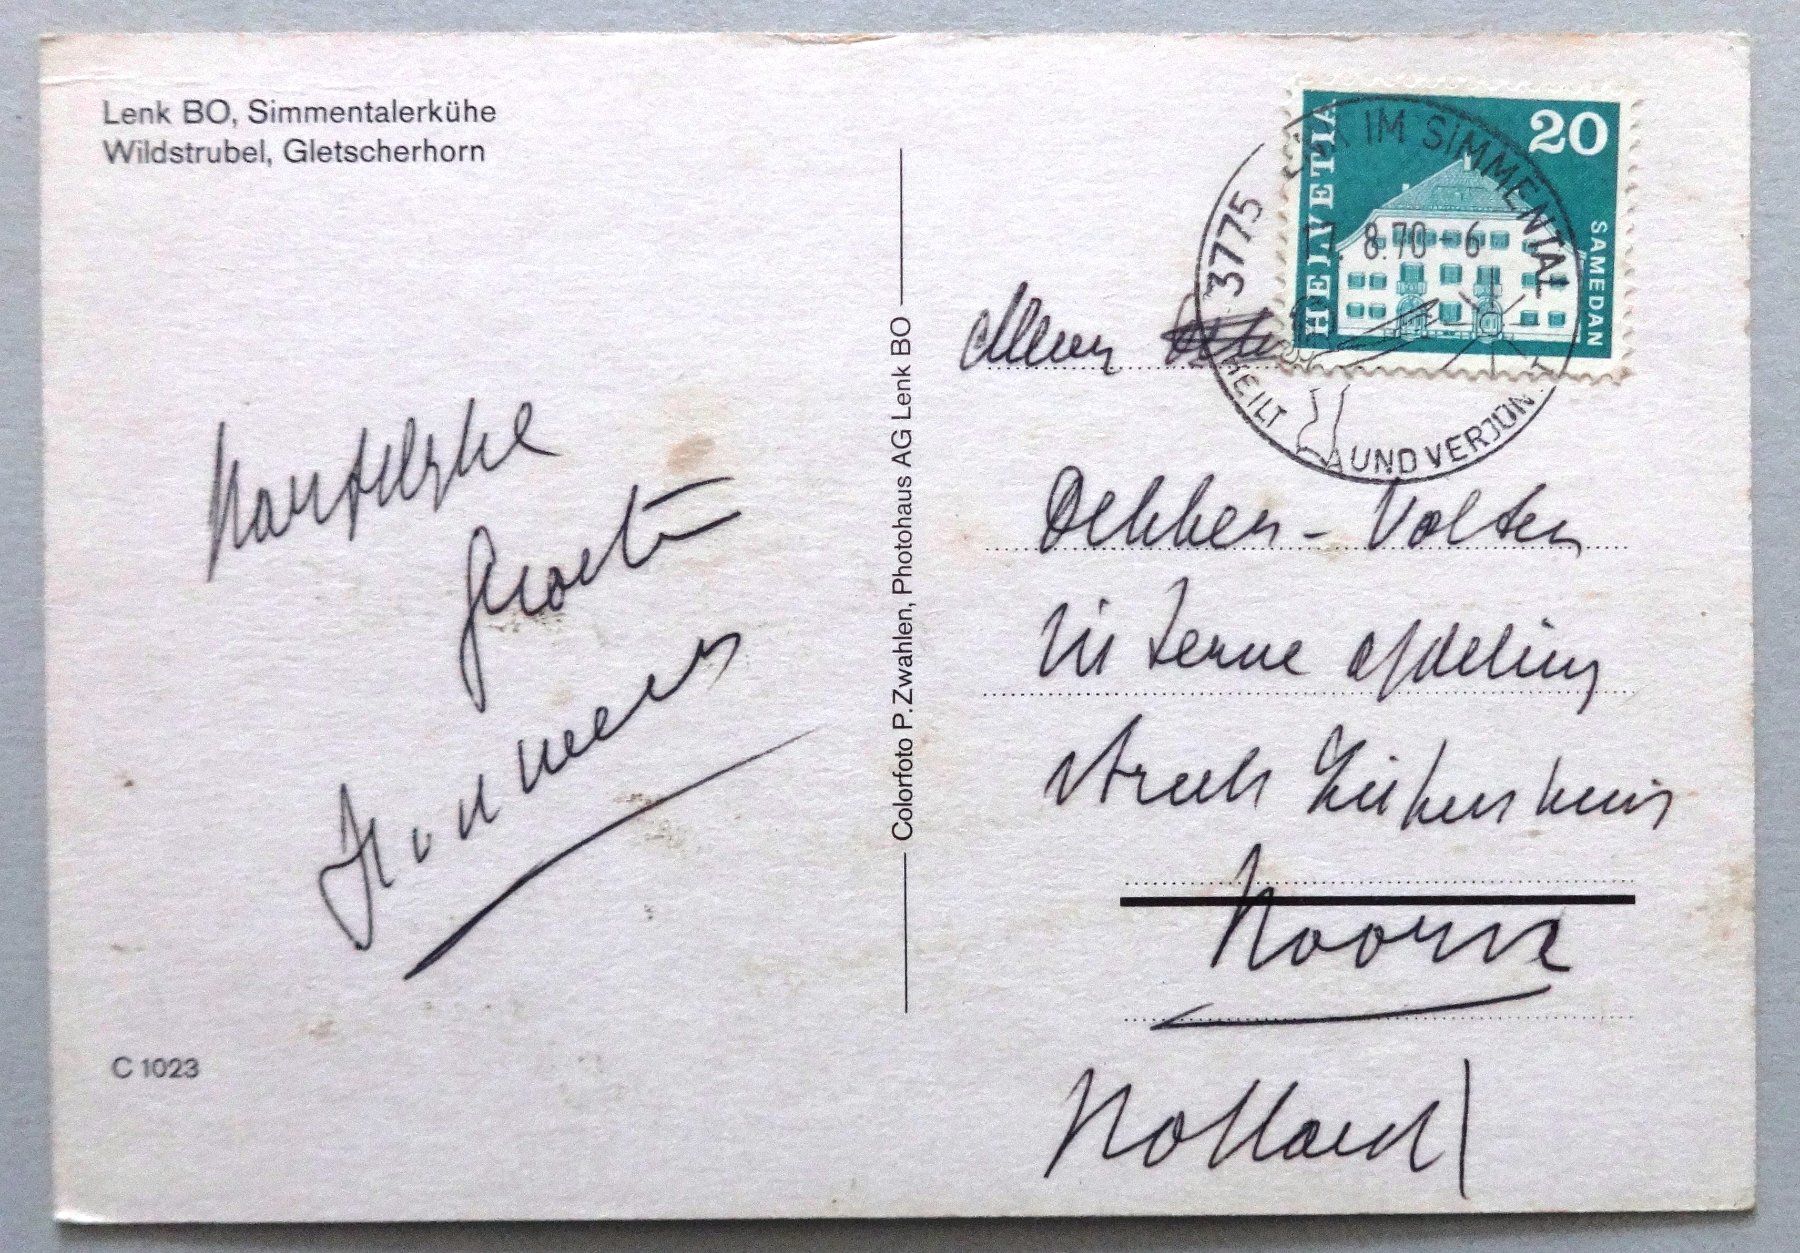 Lenk BO, Simmentalerkühe
Wildstrubel, Gletscherhorn
Hartelijke
Groeten
C 1023
Colorfoto P. Zwahlen, Photohaus AG Lenk BO
HELVETIA
20
SAMEDAN
3775 LENK IM SIMMENTAL
8.70-6
HEILT UND VERJÜNGT
Mevr
Dekker-Volten
interne afdeling
streek Ziekenhuis
Hoorn
Holland